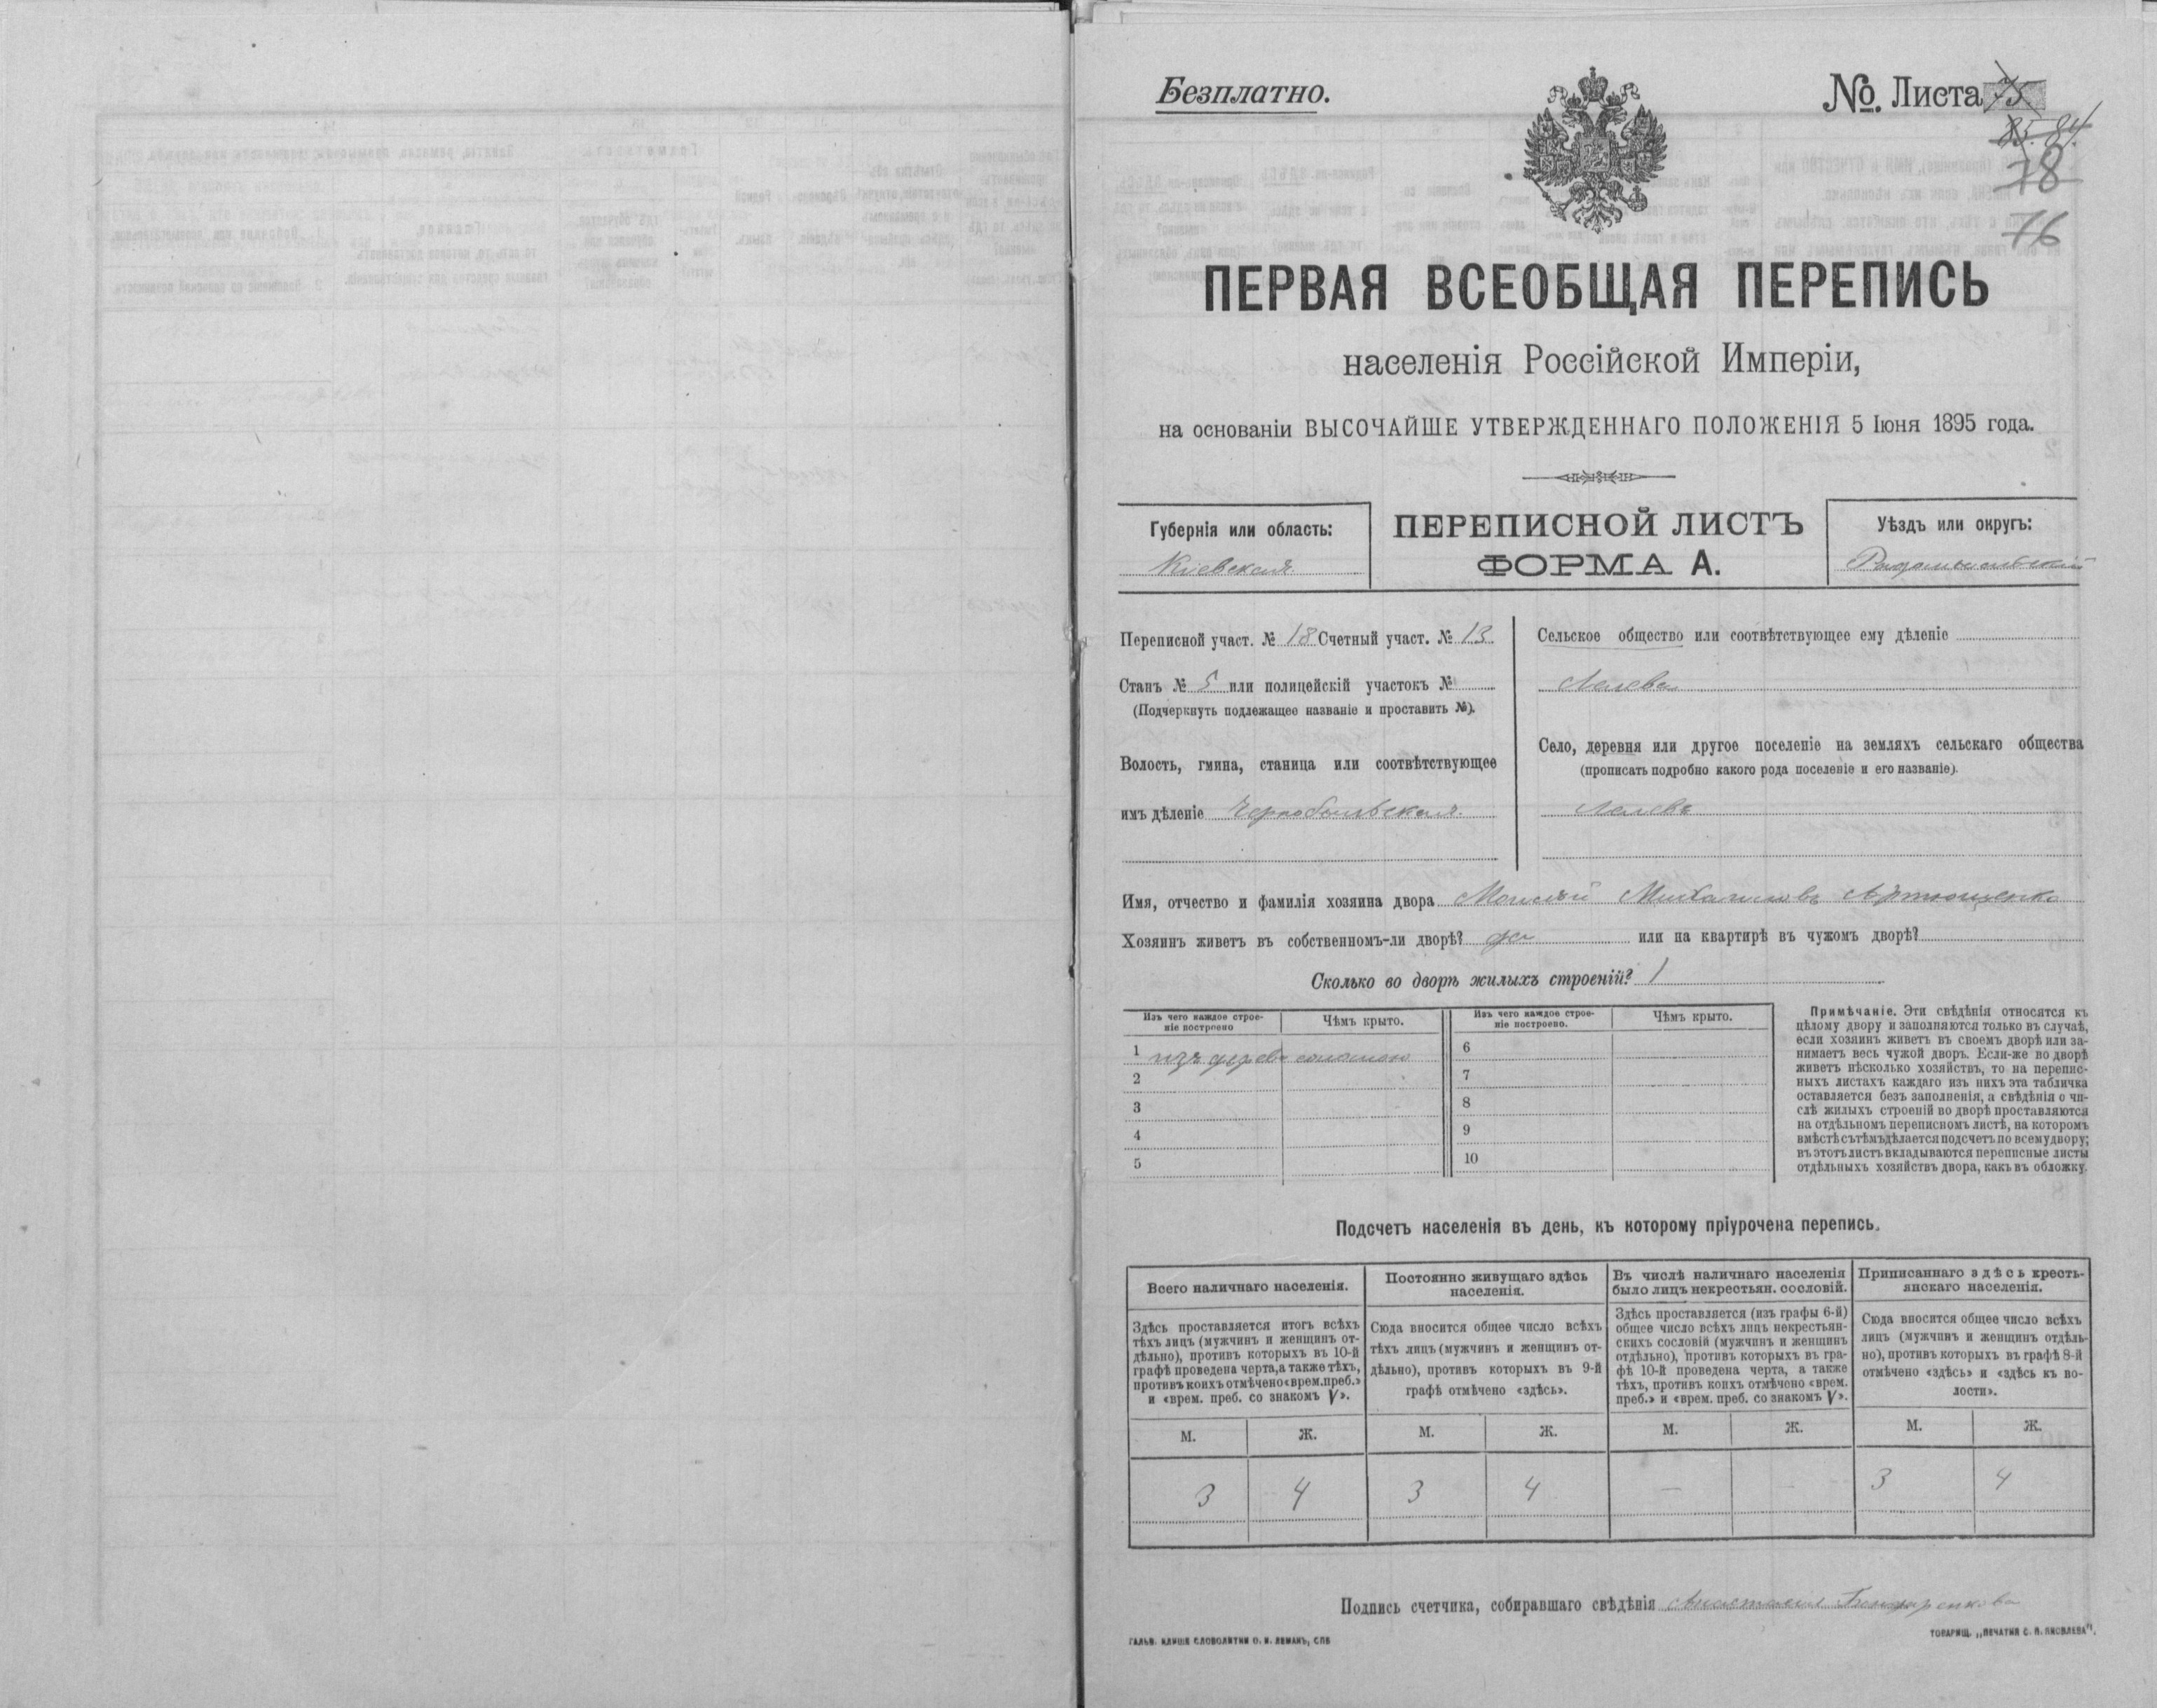 Безплатно.
№. Листа 75
85. 84.
78
76
ПЕРВАЯ ВСЕОБЩАЯ ПЕРЕПИСЬ
населенія Россійской Имперіи,
на основаніи ВЫСОЧАЙШЕ УТВЕРЖДЕННАГО ПОЛОЖЕНІЯ 5 Іюня 1895 года.
Губернія или область:
Кіевская.
ПЕРЕПИСНОЙ ЛИСТЪ
ФОРМА А.
Уѣздъ или округъ:
Радомысльскій
Переписной участ. № 18 Счетный участ. № 13
Станъ № 5 или полицейскій участокъ №
(Подчеркнуть подлежащее названіе и проставить №).
Волость, гмина, станица или соотвѣтствующее
имъ дѣленіе Чернобыльская.
Сельское общество или соотвѣтствующее ему дѣленіе
Село, деревня или другое поселеніе на земляхъ сельскаго общества
(прописать подробно какого рода поселеніе и его названіе).
Лелевъ
Имя, отчество и фамилія хозяина двора Моисей Михаиловъ Артюшенко
Хозяинъ живетъ въ собственномъ-ли дворѣ? да или на квартирѣ въ чужомъ дворѣ?
Сколько во дворѣ жилыхъ строеній? 1
Изъ чего каждое строе-
ніе построено
Чѣмъ крыто.
1 изъ дерева соломою
2
3
4
5
Изъ чего каждое строе-
ніе построено.
Чѣмъ крыто.
6
7
8
9
10
Примѣчаніе. Эти свѣдѣнія относятся къ
цѣлому двору и заполняются только въ случаѣ,
если хозяинъ живетъ въ своемъ дворѣ или за-
нимаетъ весь чужой дворъ. Если-же во дворѣ
живетъ нѣсколько хозяйствъ, то на перепис-
ныхъ листахъ каждаго изъ нихъ эта табличка
оставляется безъ заполненія, а свѣдѣнія о чи-
слѣ жилыхъ строеній во дворѣ проставляются
на отдѣльномъ переписномъ листѣ, на которомъ
вмѣстѣ съ тѣмъ дѣлается подсчетъ по всему двору;
въ этотъ листъ вкладываются переписные листы
отдѣльныхъ хозяйствъ двора, какъ въ обложку.
Подсчетъ населенія въ день, къ которому пріурочена перепись.
Всего наличнаго населенія.
Здѣсь проставляется итогъ всѣхъ
тѣхъ лицъ (мужчинъ и женщинъ от-
дѣльно), противъ которыхъ въ 10-й
графѣ проведена черта, а также тѣхъ,
противъ коихъ отмѣчено «врем. преб.»
и «врем. преб. со знакомъ V».
М. Ж.
3 4
Постоянно живущаго здѣсь
населенія.
Сюда вносится общее число всѣхъ
тѣхъ лицъ (мужчинъ и женщинъ от-
дѣльно), противъ которыхъ въ 9-й
графѣ отмѣчено «здѣсь».
М. Ж.
3 4
Въ числѣ наличнаго населенія
было лицъ некрестьян. сословій.
Здѣсь проставляется (изъ графы 6-й)
общее число всѣхъ лицъ некрестьян-
скихъ сословій (мужчинъ и женщинъ
отдѣльно), противъ которыхъ въ гра-
фѣ 10-й проведена черта, а также
тѣхъ, противъ коихъ отмѣчено «врем.
преб.» и «врем. преб. со знакомъ V».
М. Ж.
— —
Приписаннаго здѣсь кресть-
янскаго населенія.
Сюда вносится общее число всѣхъ
лицъ (мужчинъ и женщинъ отдѣль-
но), противъ которыхъ въ графѣ 8-й
отмѣчено «здѣсь» и «здѣсь къ во-
лости».
М. Ж.
3 4
Подпись счетчика, собиравшаго свѣдѣнія Анастасія
ГАЛЬВ. КЛИШЕ СЛОВОЛИТНИ О. И. ЛЕМАНЪ, СПБ
ТОВАРИЩ. „ПЕЧАТНЯ С. П. ЯКОВЛЕВА".